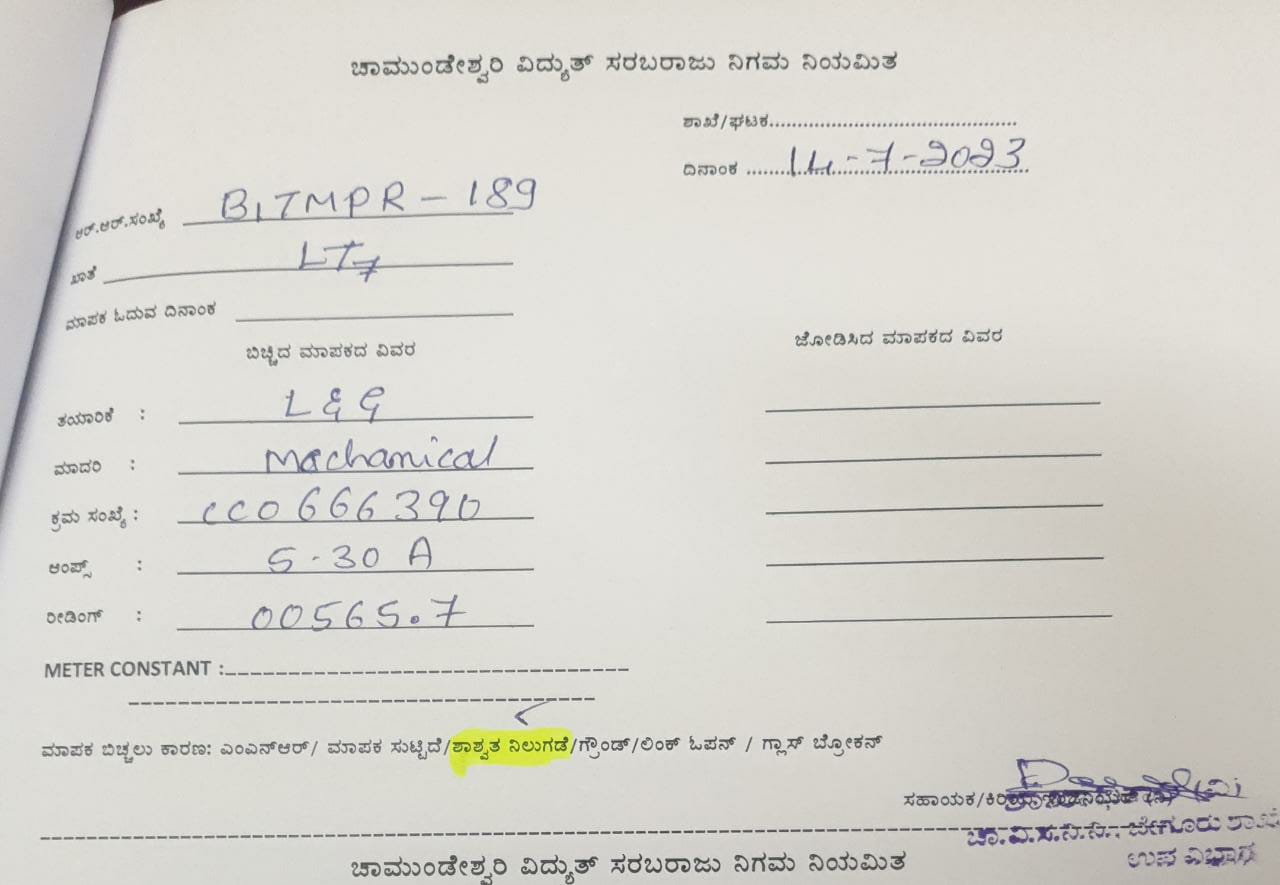 ಚಾಮುಂಡೇಶ್ವರಿ ವಿದ್ಯುತ್ ಸರಬರಾಜು ನಿಗಮ ನಿಯಮಿತ
ಶಾಖೆ/ಘಟಕ............................................
ದಿನಾಂಕ ...14-7-2023...
ಆರ್.ಆರ್.ಸಂಖ್ಯೆ B1TMPR - 189
ಖಾತೆ LT7
ಮಾಪಕ ಓದುವ ದಿನಾಂಕ
ಬಿಚ್ಚಿದ ಮಾಪಕದ ವಿವರ ಜೋಡಿಸಿದ ಮಾಪಕದ ವಿವರ
ತಯಾರಿಕೆ : L & G
ಮಾದರಿ : Mechanical
ಕ್ರಮ ಸಂಖ್ಯೆ : CC0666390
ಆಂಪ್ಸ್ : 5-30 A
ರೀಡಿಂಗ್ : 00565.7
METER CONSTANT :
ಮಾಪಕ ಬಿಚ್ಚಲು ಕಾರಣ: ಎಂಎನ್ಆರ್/ ಮಾಪಕ ಸುಟ್ಟಿದೆ/ಶಾಶ್ವತ ನಿಲುಗಡೆ/ಗ್ರೌಂಡ್/ಲಿಂಕ್ ಓಪನ್ / ಗ್ಲಾಸ್ ಬ್ರೋಕನ್
ಸಹಾಯಕ/ಕಿರಿಯ
ಚಾ.ವಿ.ಸ.ನಿ.ನಿ., ಬೇಗೂರು ಶಾಖೆ
ಉಪ ವಿಭಾಗ
ಚಾಮುಂಡೇಶ್ವರಿ ವಿದ್ಯುತ್ ಸರಬರಾಜು ನಿಗಮ ನಿಯಮಿತ